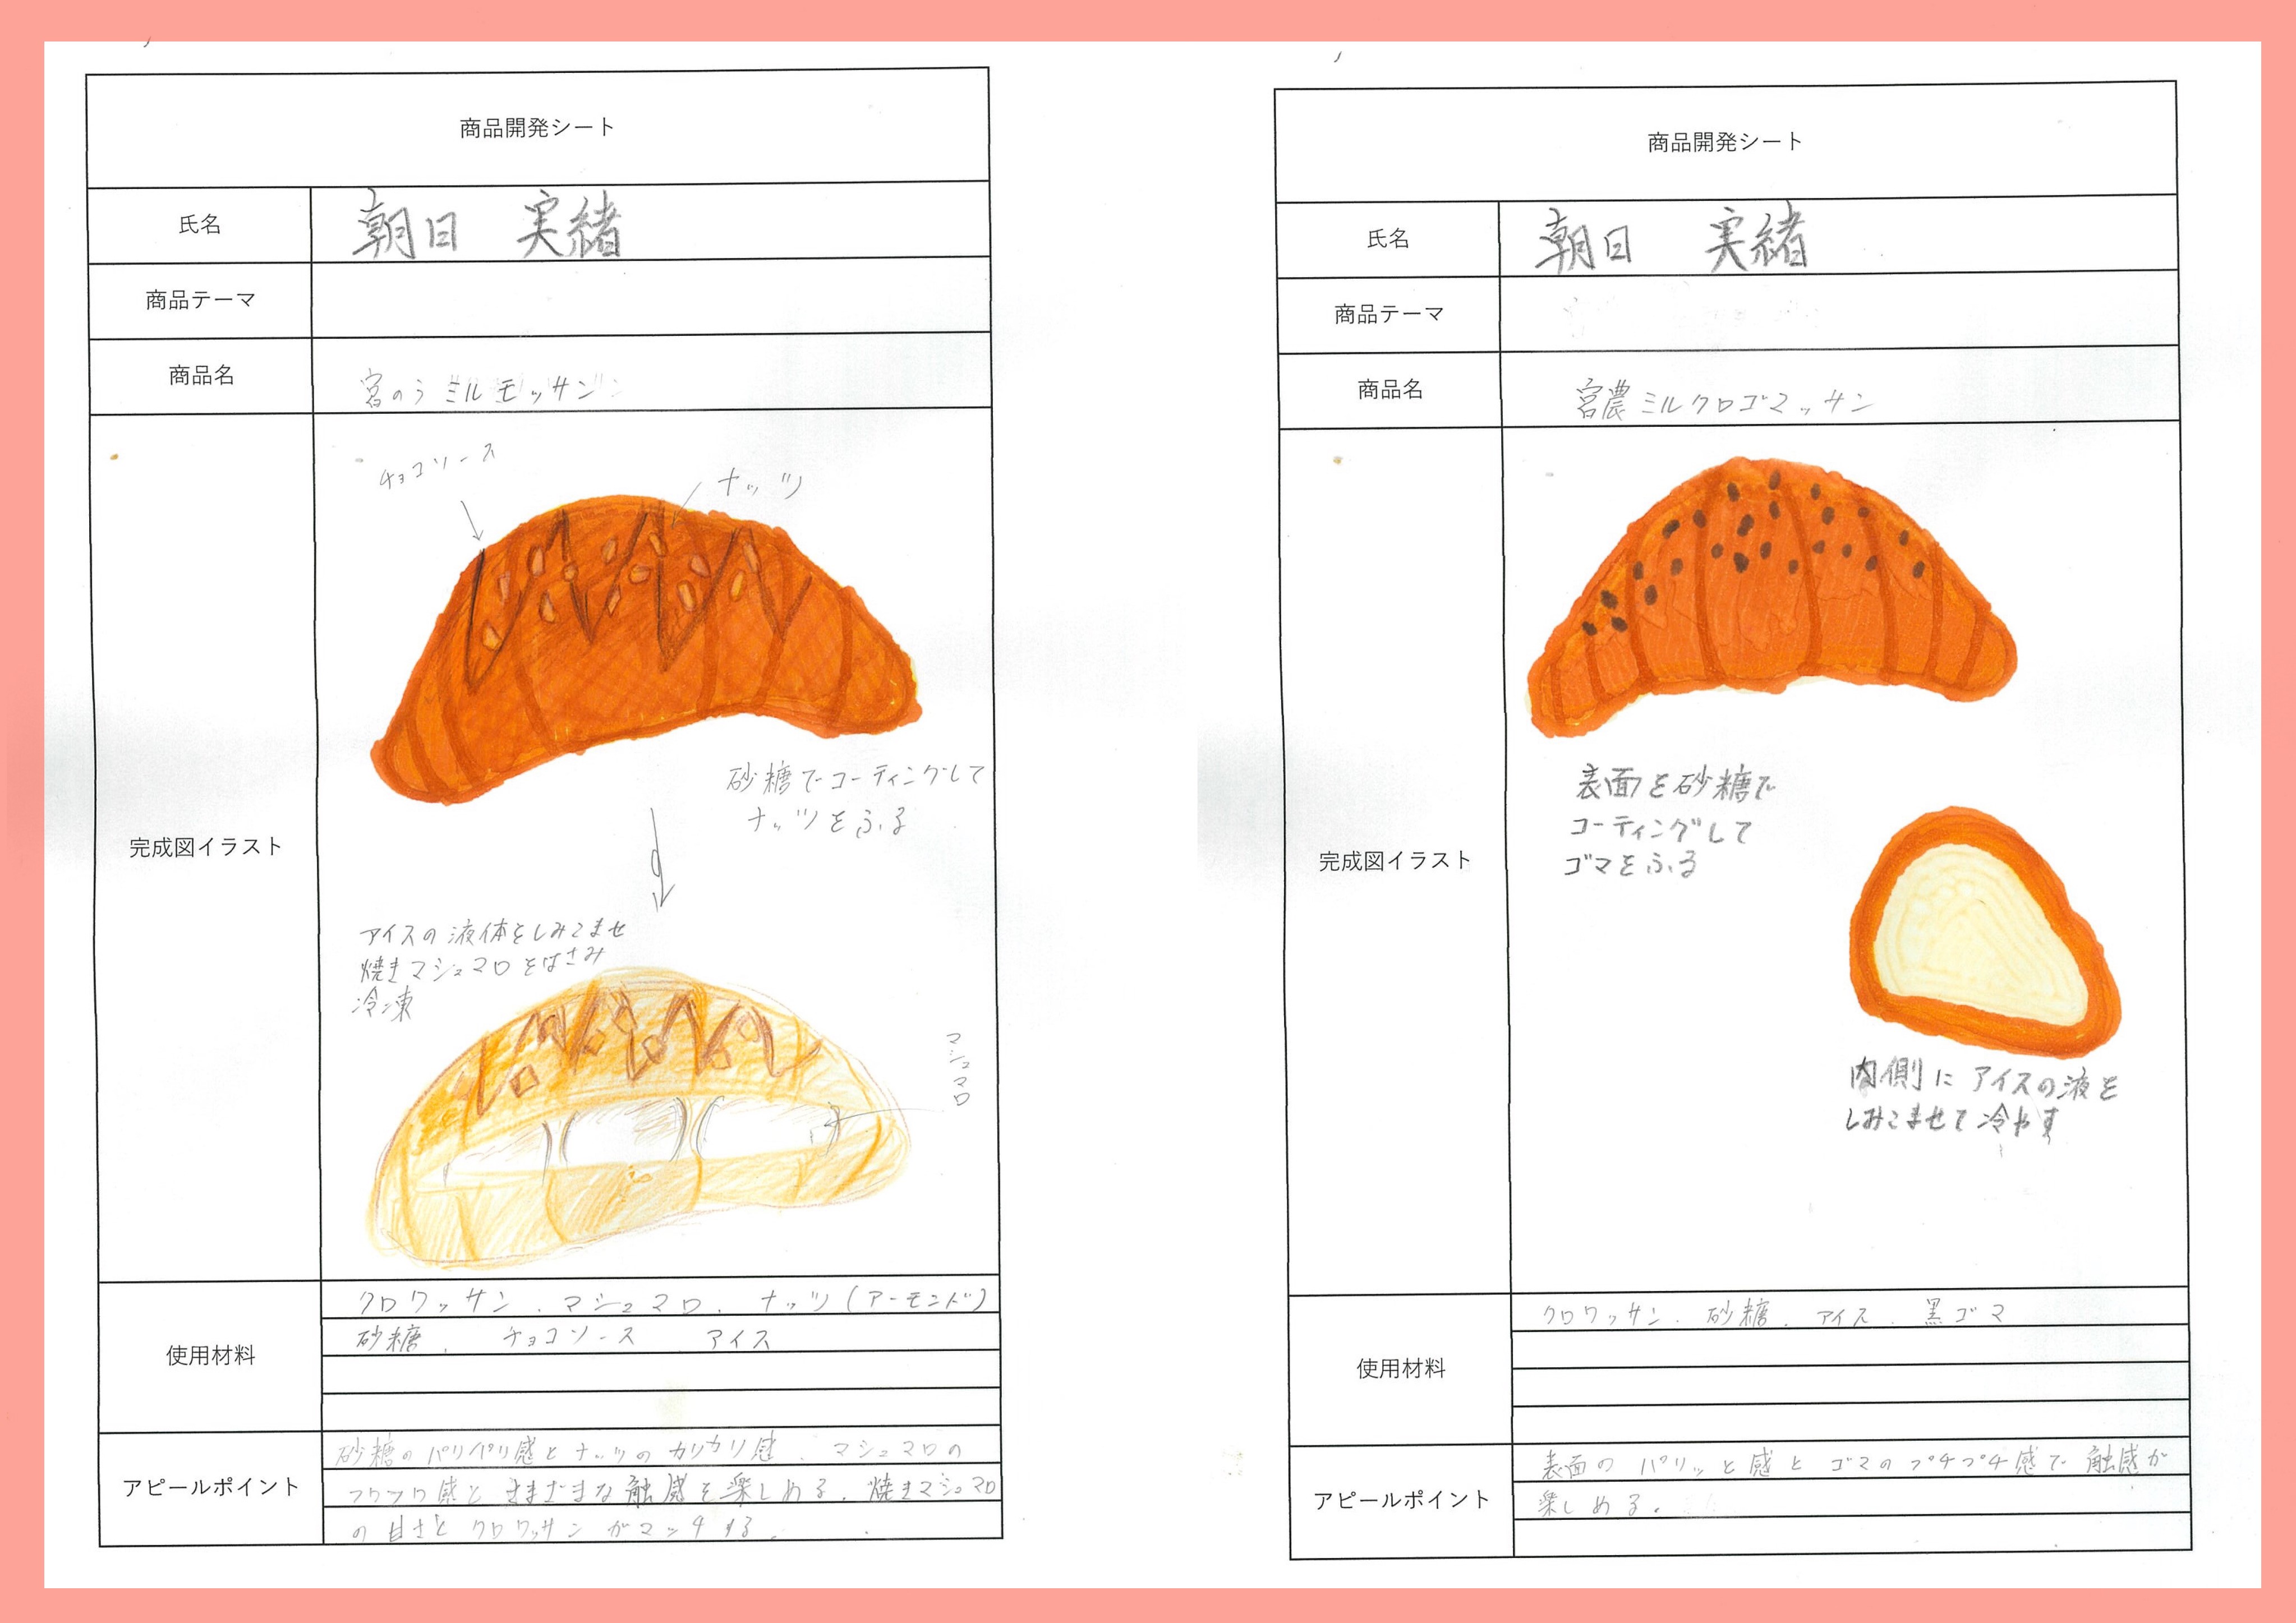 商品開発シート
氏名
朝日 実緒
商品テーマ
商品名
宮のうミルモッサン
チョコソース
ナッツ
砂糖でコーティングして
ナッツをふる
アイスの液体をしみこませ
焼きマシュマロをはさみ
冷凍
マシュマロ
完成図イラスト
使用材料
クロワッサン、マシュマロ、ナッツ(アーモンド)
砂糖、チョコソース アイス
アピールポイント
砂糖のパリパリ感とナッツのカリカリ感、マシュマロの
フワフワ感とさまざまな触感を楽しめる。焼きマシュマロ
の甘さとクロワッサンがマッチする。
商品開発シート
氏名
朝日 実緒
商品テーマ
商品名
宮農ミルクロゴマッサン
表面を砂糖で
コーティングして
ゴマをふる
完成図イラスト
内側にアイスの液を
しみこませて冷やす
使用材料
クロワッサン、砂糖、アイス、黒ゴマ
アピールポイント
表面のパリッと感とゴマのプチプチ感で触感が
楽しめる。